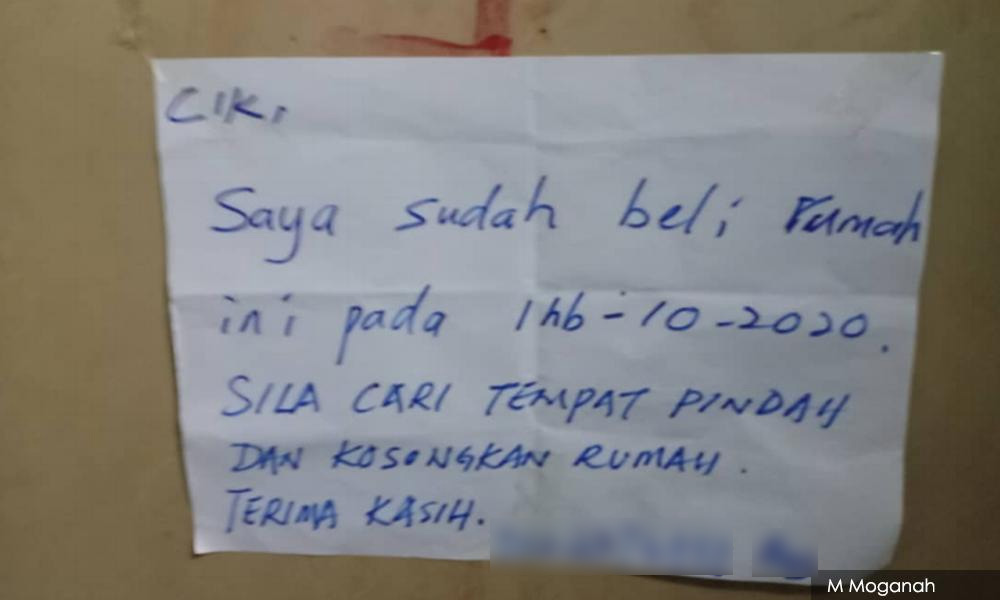 CIK,
Saya sudah beli rumah
ini pada 1hb-10-2020.
SILA CARI TEMPAT PINDAH
DAN KOSONGKAN RUMAH.
TERIMA KASIH.
M Moganah